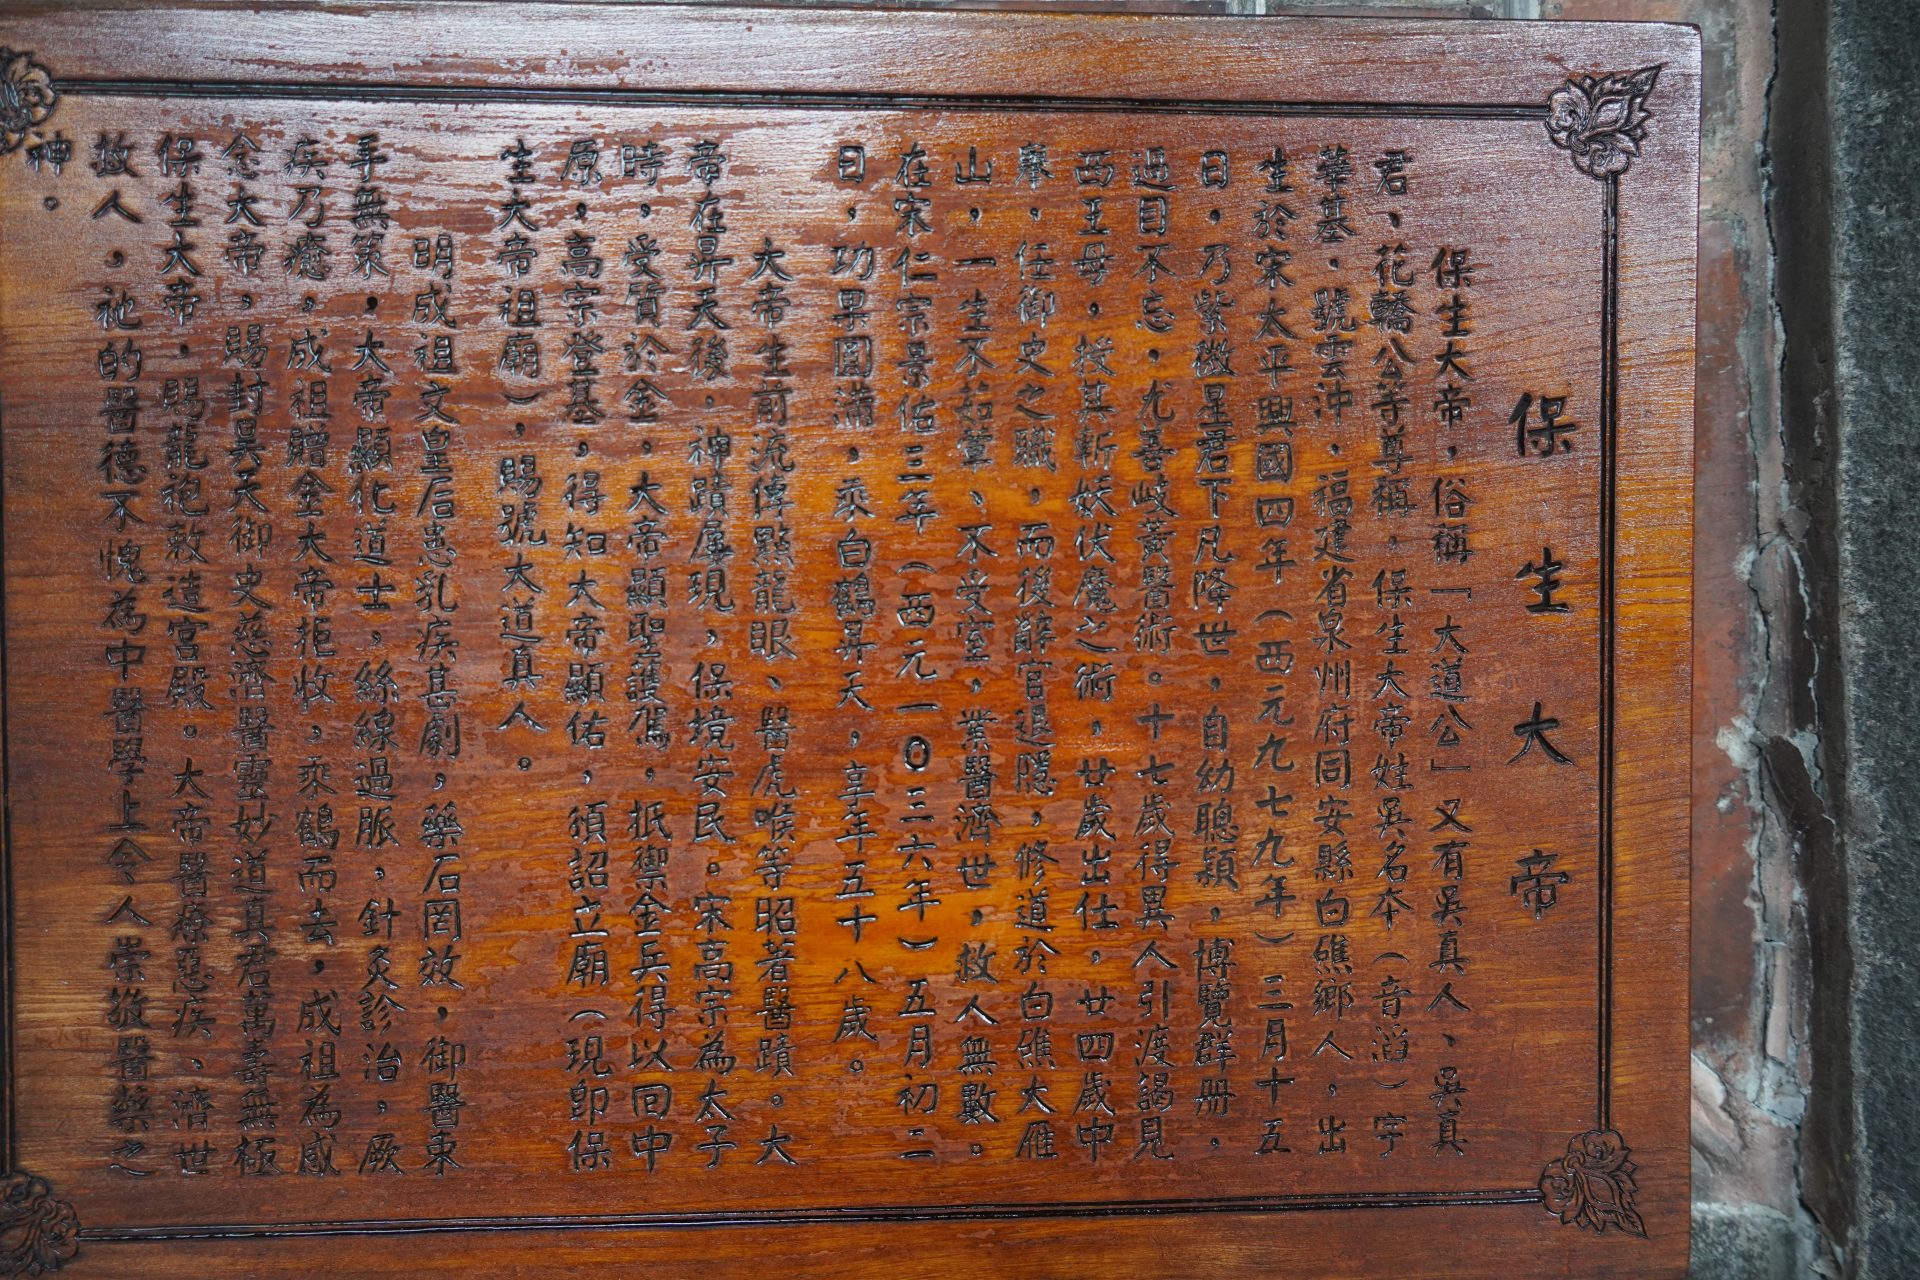 保生大帝
保生大帝，俗稱「大道公」又有吳真人、吳真
君、花轎公等尊稱．保生大帝姓吳名夲（音滔）字
華基．號雲沖，福建省泉州府同安縣白礁鄉人，出
生於宋太平興國四年（西元九七九年）三月十五
日，乃紫微星君下凡降世，自幼聰穎，博覽群册，
過目不忘．尤善岐黃醫術。十七歲得異人引渡謁見
西王母，授其斬妖伏魔之術，廿歲出仕，廿四歲中
舉，任御史之職，而後辭官退隱，修道於白礁大雁
山，一生不茹葷、不受室，業醫濟世，救人無數。
在宋仁宗景佑三年（西元一0三六年）五月初二
日，功果圓滿，乘白鶴昇天，享年五十八歲。
大帝生前流傳點龍眼、醫虎喉等昭著醫蹟。大
帝在昇天後．神蹟屢現，保境安民。宋高宗為太子
時，受質於金，大帝顯聖護駕，抵禦金兵得以回中
原，高宗登基，得知大帝顯佑，頒詔立廟（現即保
生大帝祖廟），賜號大道真人。
明成祖文皇后患乳疾甚劇，藥石罔效，御醫束
手無策，大帝顯化道士，絲線過脈，針灸診治，厥
疾乃癒，成祖贈金大帝拒收，乘鶴而去，成祖為感
念大帝，賜封昊天御史慈濟醫靈妙道真君萬壽無極
保生大帝，賜龍袍敕造宮殿。大帝醫療惡疾、濟世
救人，祂的醫德不愧為中醫學上令人崇敬醫藥之
神。